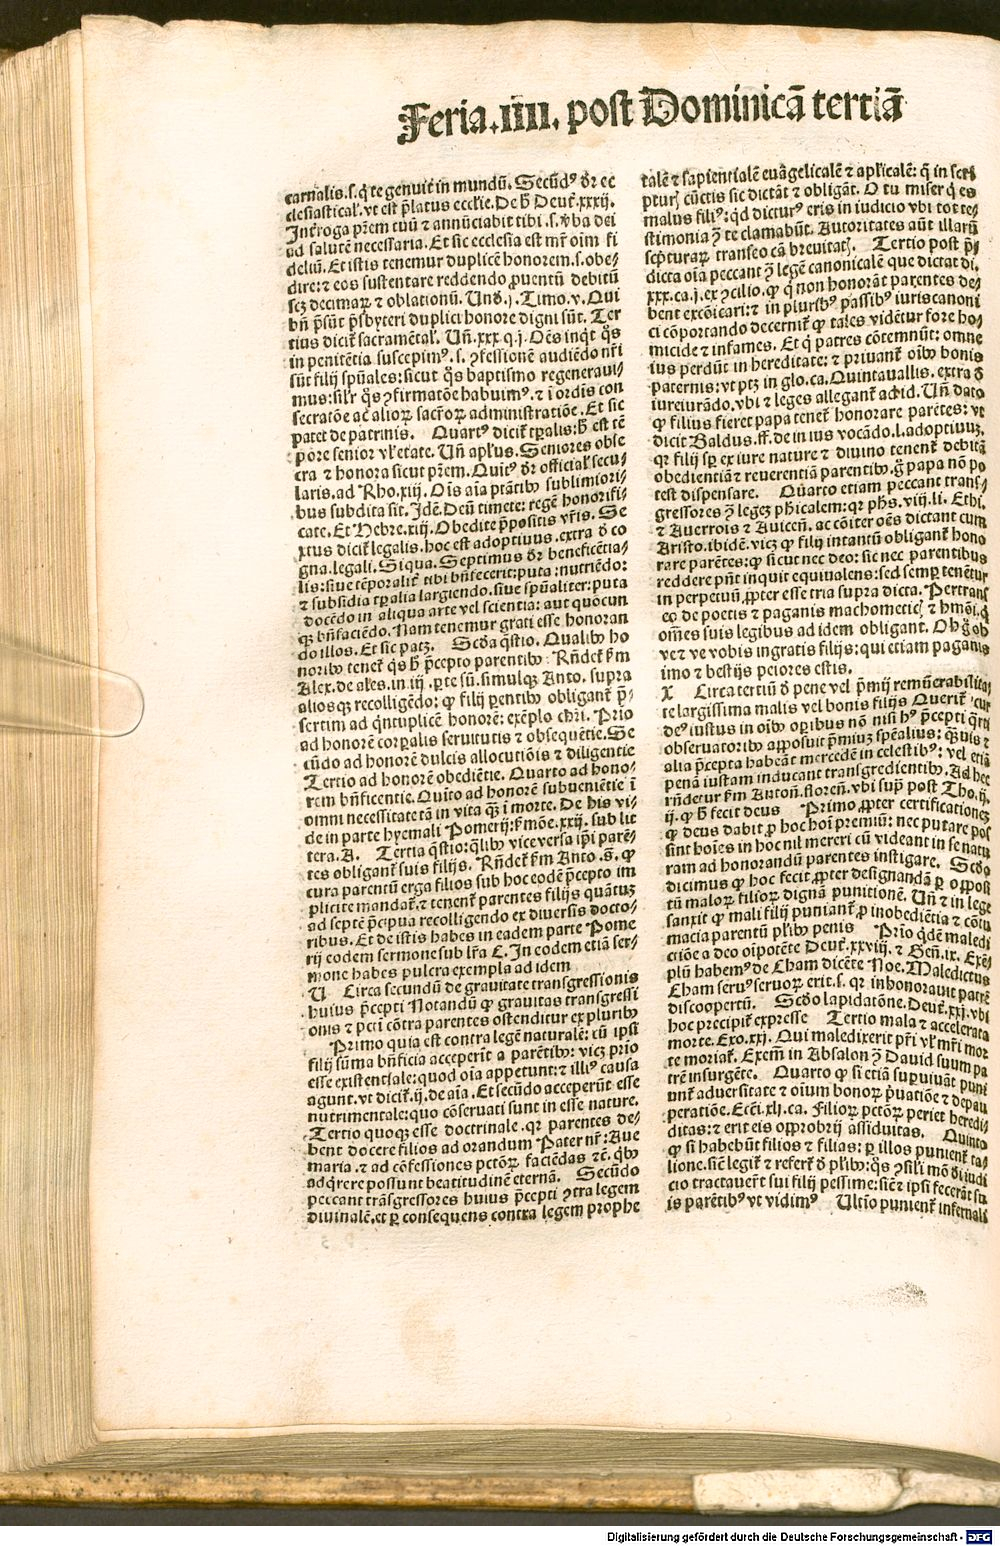 Feria.iiii. post Dominicā tertiā
carnalis.s.q te genuit in mundū. Secūdꝰ dr̄ ec
clesiastical'.vt est p̄latus ecclie. De h̄ Deut̄.xxxij.
Int̄roga pr̄em tuū ⁊ annūciabit tibi .s. v̄ba dei
ad salutē necessaria. Et sic ecclesia est mr̄ oīm fi
deliū. Et istis tenemur duplicē honorem.s.obe-
dire: ⁊ eos sustentare reddendo ꝓuentū debitū
scꝫ decimaꝝ ⁊ oblationū. Vn̄ .j. Timo.v. Qui
bn̄ p̄sūt p̄sbyteri duplici honore digni sūt. Ter
tius dicit̄ sacramētal'. Vn̄.xxx q.j. Oēs inq̄t qͦs
in penitētia suscepimꝰ .s. ꝯfessionē audiēdo nr̄i
sūt filij spūales: sicut qͦs baptismo regeneraui-
mus: sil'r qͦs ꝯfirmatōe habuimꝰ. ⁊ ī ordīs con
secratōe ac alioꝝ sacr̄oꝝ administratiōe. Et sic
patet de patrinis. Quartꝰ dicit̄ tp̄alis: h̄ est tē
pore senior vl' etate. Vn̄ apl'us. Seniores obse
cra ⁊ honora sicut pr̄em. Quītꝰ dr̄ official' secu-
laris. ad Rho.xiij. Oīs aīa ptātibꝫ sublimiori-
bus subdita sit. Idē. Deū timete: regē honorifi-
cate. Et Hebre.xiij. Obedite p̄positis vr̄is. Se
xtus dicit̄ legalis. hoc est adoptiuus. extra ð co
gna. legali. Si qua. Septimus dr̄ beneficētia-
lis: siue tēporalit̄ tibi bn̄fecerit: puta: nutriēdo:
⁊ subsidia tp̄alia largiendo. siue spūaliter: puta
docēdo in aliqua arte vel scientia: aut quōcun
qꝫ bn̄faciēdo. Nam tenemur grati esse honoran
do illos. Et sic patꝫ. Scd̄a q̄stio. Qualibꝫ ho
noribꝫ tenet̄ qͥs h̄ p̄cepto parentibꝫ. Rn̄det̄ ẜm
Alex. de ales. in iij. ꝑte sū. simulqꝫ Anto. supra
aliosqꝫ recolligēdo: ꝙ filij ꝑentibꝫ obligant̄ p̄-
sertim ad qͥntuplicē honorē: exēplo chr̄i. Prīo
ad honorē corꝑalis seruitutis ⁊ obsequētie. Se
cūdo ad honorē dulcis allocutiōis ⁊ diligentie
Tertio ad honorē obediētie. Quarto ad hono-
rem bn̄ficentie. Quīto ad honorē subueniētie ī
omni necessitate tā in vita qꝫ ī morte. De his vi-
de in parte hyemali Pomerij: ẜmōe.xxij. sub lit
tera. A. Tertia q̄stio: qͣlibꝫ vice versa ip̄i parē-
tes obligant̄ suis filijs. Rn̄det̄ ẜm Anto .s. ꝙ
cura parentū erga filios sub hoc eodē p̄cepto im
plicite mandat̄. ⁊ tenent̄ parentes filijs quātuꝫ
ad septē p̄cipua recolligendo ex diuersis docto-
ribus. Et de istis habes in eadem parte Pome
rij eodem sermone sub lr̄a C. In eodem etiā ser-
mone habes pulcra exempla ad idem
V Circa secundū de grauitate transgressionis
huius p̄cepti Notandū ꝙ grauitas transgressi
onis ⁊ pctī cōtra parentes ostenditur ex pluribꝫ
Primo quia est contra legē naturalē: cū ipsi
filij sūma bn̄ficia acceperīt a parētibꝫ: vicꝫ prīo
esse existentiale: quod oīa appetunt: ⁊ illiꝰ causa
agunt. vt dicit̄.ij. de aīa. Et secūdo acceperūt esse
nutrimentale: quo cōseruati sunt in esse nature.
Tertio quoqꝫ esse doctrinale. qr parentes de-
bent docere filios ad orandum Pater nr̄: Aue
maria. ⁊ ad cōfessiones pctōꝝ faciēdas ⁊c. qͥbꝫ
adqͥrere possunt beatitudinē eternā. Secūdo
peccant trāsgressores huius p̄cepti ꝯtra legem
diuinalē. et ꝑ consequens contra legem prophe
talē ⁊ sapientialē euāgelicalē ⁊ apl'icalē: qͥ in scri
pturꝭ cūctis sic dictāt ⁊ obligāt. O tu miser q es
malus filiꝰ: qd dicturꝰ eris in iudicio vbi tot te-
stimonia ꝯ̄ te clamabūt. Autoritates aūt illarū
scp̄turaꝝ transeo cā breuitatꝭ. Tertio post p̄-
dicta oīa peccant ꝯ̄ legē canonicalē que dictat di.
xxx. ca.j. ex ꝯcilio. ꝙ q non honorāt parentes de-
bent excōicari: ⁊ in pluribꝰ passibꝰ iuris canoni
ci cōportando decernit̄ ꝙ tales vidētur fore ho-
micide ⁊ infames. Et q patres cōtemnūt: omne
ius perdūt in hereditate: ⁊ priuant̄ oībꝫ bonis
paternis: vt ptꝫ in glo. ca. Quintauallis. extra ð
iureiurādo. vbi ⁊ leges allegant̄ ad id. Vn̄ dato
ꝙ filius fieret papa tenet̄ honorare parētes: vt
dicit Baldus. ff. de in ius vocādo. l. adoptiuuꝫ.
qr filij sꝑ ex iure nature ⁊ diuino tenent̄ debitā
obedientiā ⁊ reuerentiā parentibꝫ. g̊ papa nō po
test dispensare. Quarto etiam peccant trans-
gressores ꝯ̄ legeꝫ ph̄icalem: qr ph̄s. viij. li. Ethi.
⁊ Auerrois ⁊ Auicen̄. ac cōiter oēs dictant cum
Aristo. ibidē. vicꝫ ꝙ filij intantū obligant̄ hono
rare parētes: ꝙ sicut nec deo: sic nec parentibus
reddere pn̄t inquit equiualens: sed semꝑ tenētur
in perpetuū, ꝓpter esse tria supra dicta. Pertrans
eo de poetis ⁊ paganis machometicꝭ ⁊ hmōi. q
om̄es suis legibus ad idem obligant. Oh g̊ oh
ve ⁊ ve vobis ingratis filijs: qui etiam paganis
imo ⁊ bestijs peiores estis.
X Circa tertiū ð pene vel p̄mij remūerabilita-
te largissima malis vel bonis filijs Querit̄ cur
deꝰ iustus in oībꝫ oꝑibus nō nisi hꝰ p̄cepti qͣrti
obseruatoribꝫ apposuit p̄miuꝫ spēalius: qͣuis ⁊
alia p̄cepta habeāt mercedē in celestibꝰ: vel etiā
penā iustam inducant transgredientibꝫ. Ad hec
rn̄detur ẜm Anton̄. floren̄. vbi sup̄ post Tho. ij.
ij. ꝙ h̄ fecit deus Primo ꝓpter certificationeꝫ
ꝙ deus dabit ꝓ hoc hoī premiū: nec putare pos
sint hoīes in hoc nil mereri cū videant in se natu
ram ad honorandū parentes instigare. Scd̄o
dicimus ꝙ hoc fecit ꝓpter designandā ꝑ opposi
tū maloꝝ filioꝝ dignā punitionē. Vn̄ ⁊ in lege
sanxit ꝙ mali filij puniant̄ ꝓ inobediētia ⁊ cōtu
macia parentū pl'ibꝫ penis Prīo qͥdē maledi
ctiōe a deo oīpotēte Deut̄.xxviij. ⁊ Gen̄.ix. Exē-
plū habemꝰ de Cham dicēte Noe. Maledictus
Cham seruꝰ seruoꝝ erit.s. qr inhonorauit patrē
discoopertū. Scd̄o lapidatōne. Deut̄.xxj. vbi
hoc precipit̄ expresse Tertio mala ⁊ accelerata
morte. Exo.xxj. Qui maledixerit pr̄i vl' mr̄i mor
te moriat̄. Exem̄ in Absalon ꝯ̄ Dauid suum pa
trē insurgēte. Quarto ꝙ si etiā suꝑuiuāt puni
unt̄ aduersitate ⁊ oīum bonoꝝ p̄uatiōe ⁊ depau
peratiōe. Ecc̄i.xlj. ca. Filioꝝ pctōꝝ periet heredi-
ditas: ⁊ erit eis opprobrij assiduitas. Quinto
ꝙ si habebūt filios ⁊ filias: ꝑ illos punient̄ ta-
lione. siē legit̄ ⁊ refert̄ ð pl'ibꝫ: qͦs ꝯsil'i mō di iudi
cio tractauer̄t sui filij pessime: siē ⁊ ipsi fecerāt su
is parētibꝰ vt vidimꝰ Vltīo punient̄ infernali
Digitalisierung gefördert durch die Deutsche Forschungsgemeinschaft - DFG